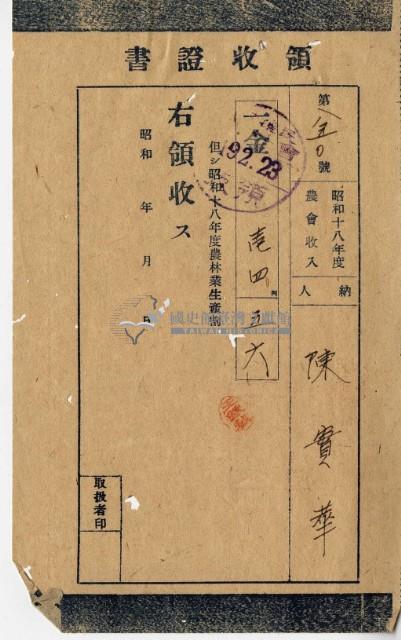 領收證書
第 號
昭和十八年度
農會收入
納人
陳寶華
一金
壱四円五六
但シ昭和十八年度農林業生產割
右領收ス
昭和 年 月 日
取扱者印
92.2.23
領收
國史館臺灣文獻館
TAIWAN HISTORICA